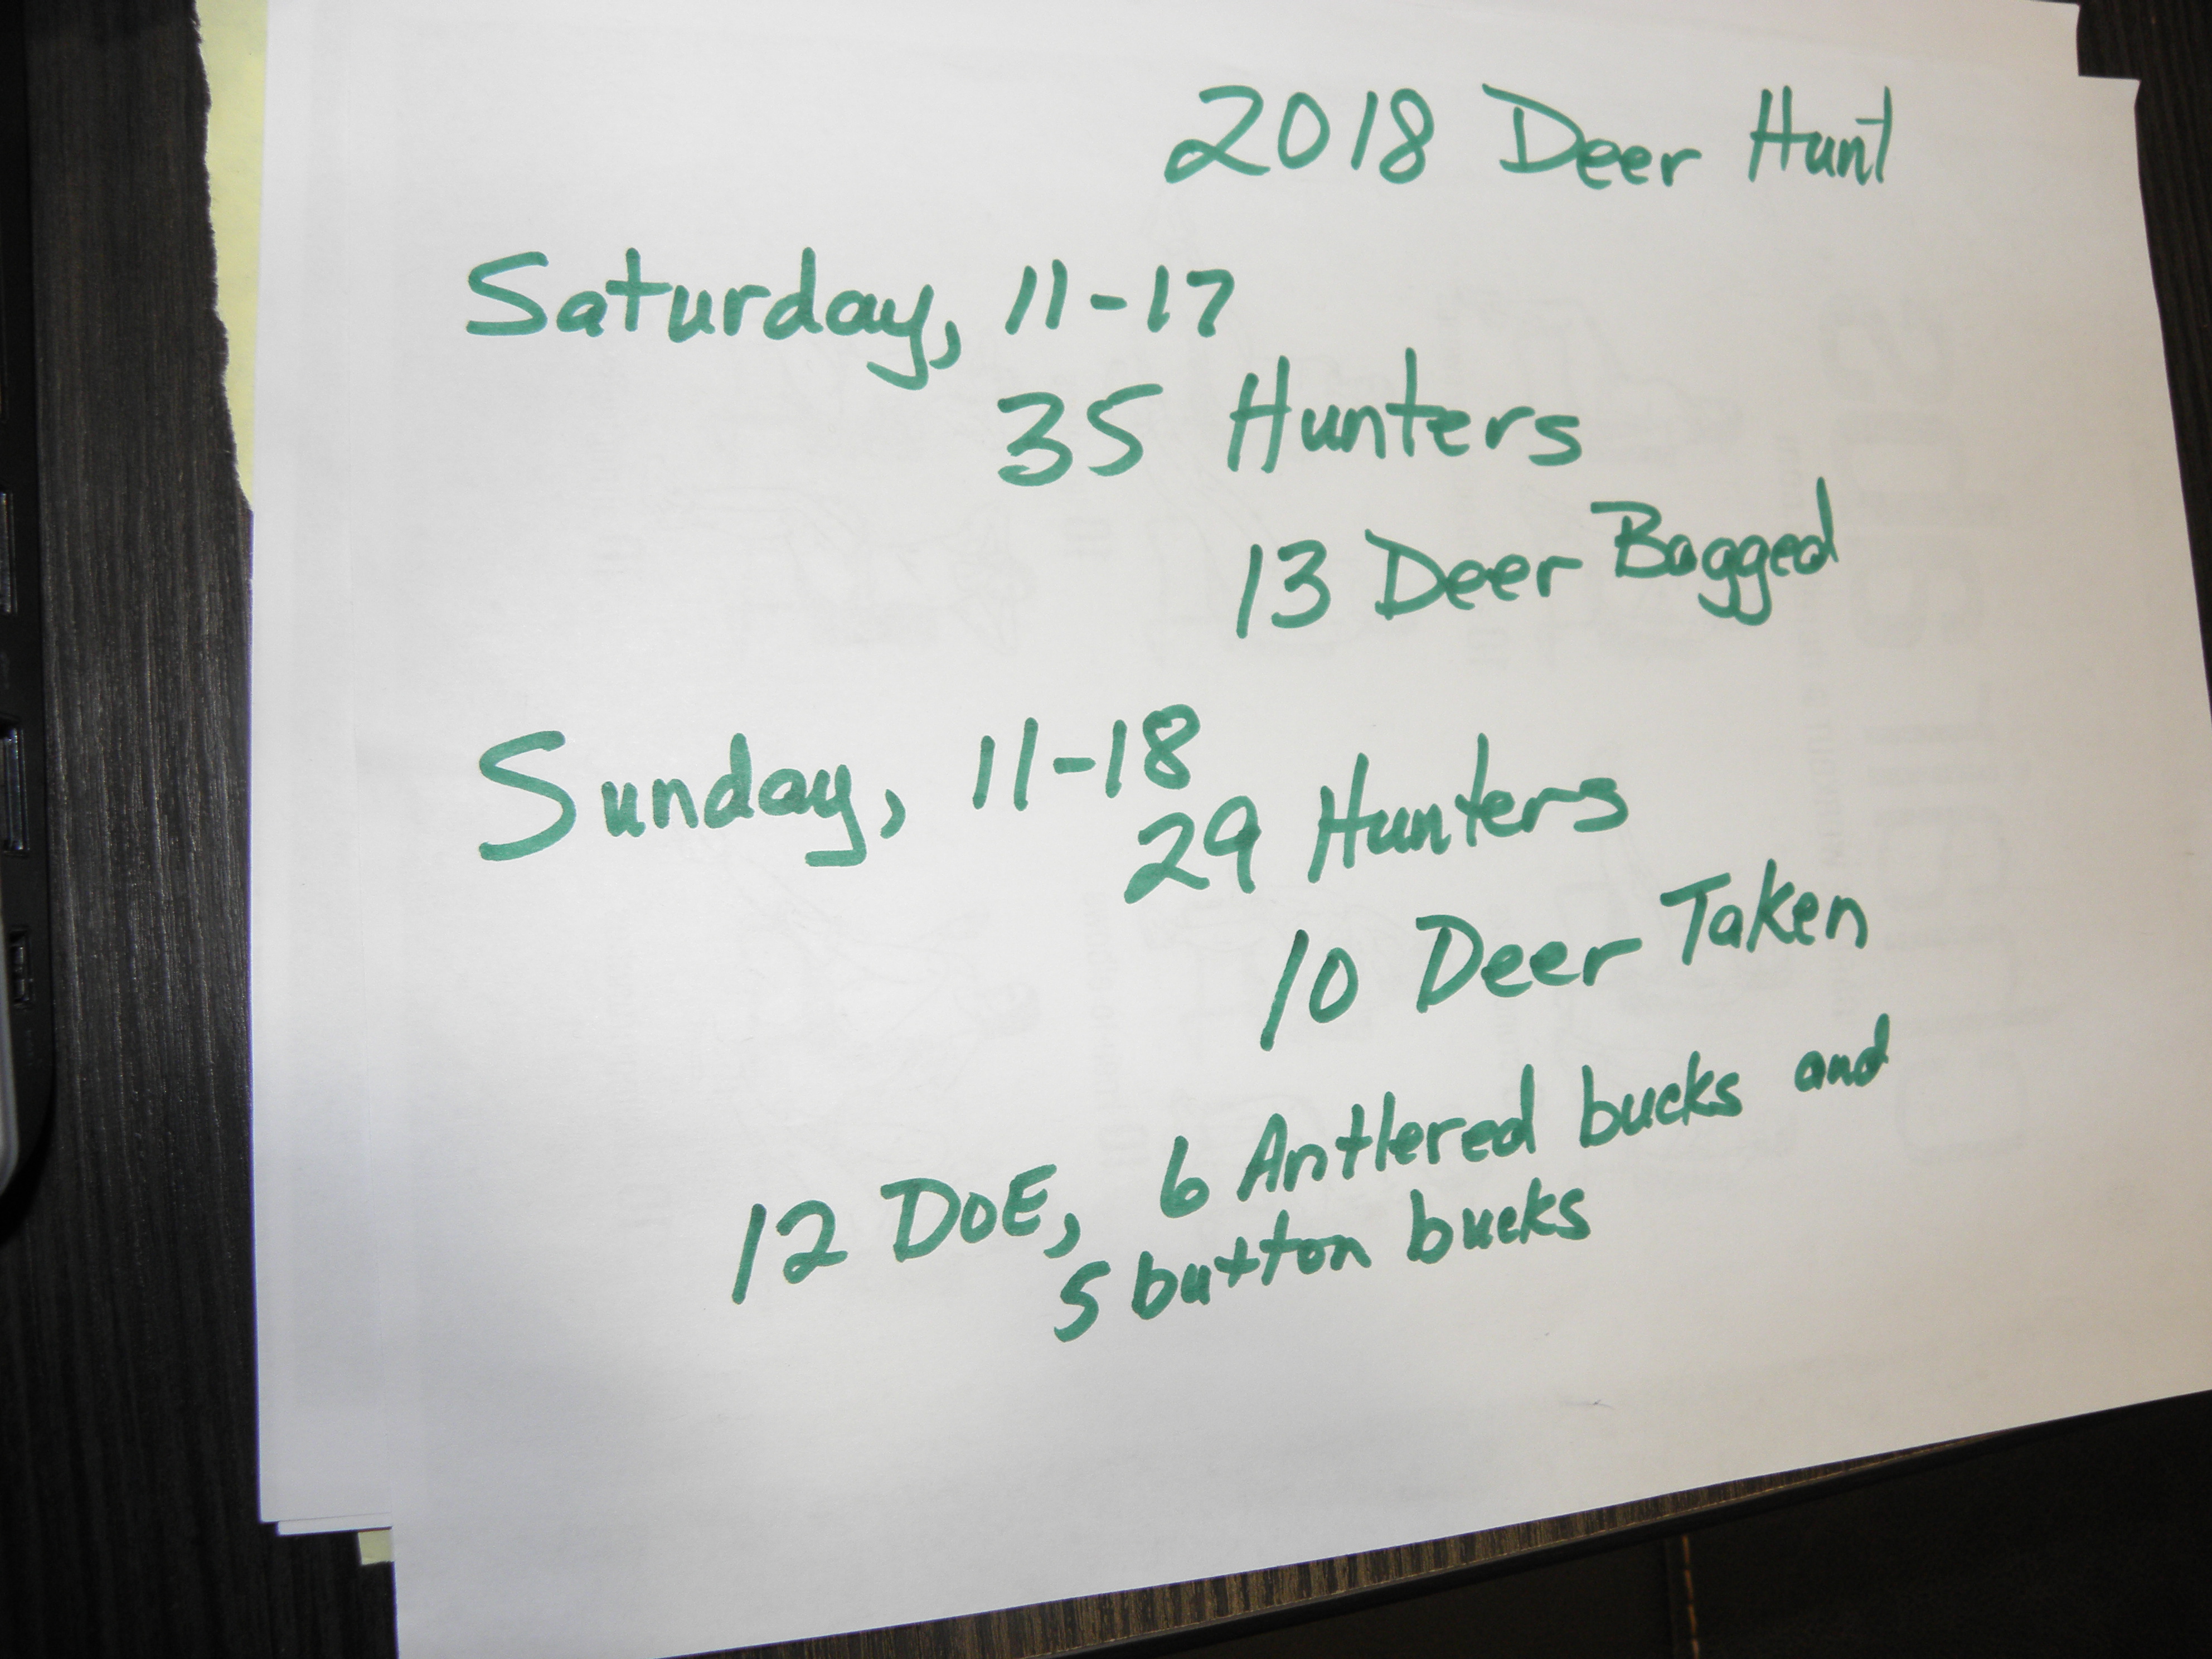 2018 Deer Hunt
Saturday, 11-17
35 Hunters
13 Deer Bagged
Sunday, 11-18
29 Hunters
10 Deer Taken
12 DOE, 6 Antlered bucks and
5 button bucks